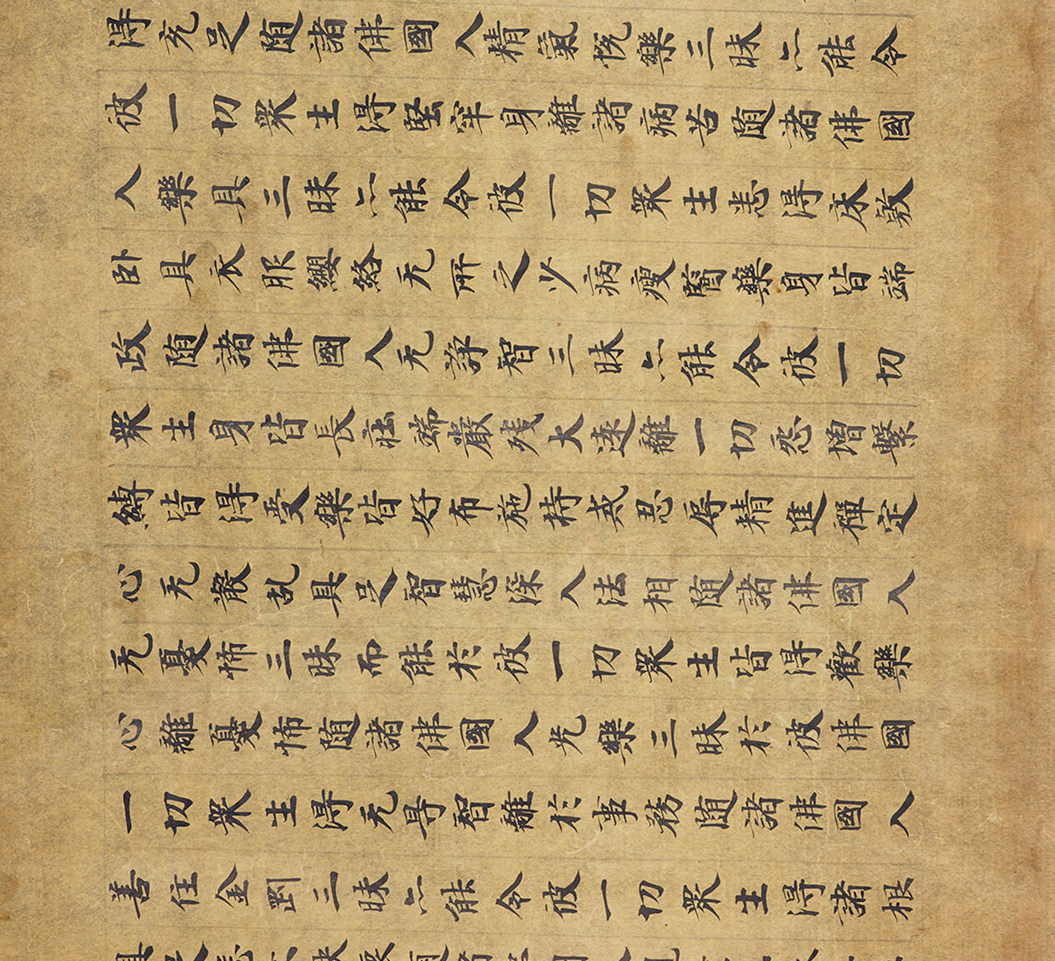 得充足随諸佛國入精氣悦樂三昧亦能令
彼一切眾生得堅牢身離諸病苦随諸佛國
入樂具三昧亦能令彼一切眾生悉得床敷
卧具衣服纓絡无所乏少病瘦醫藥身皆端
政随諸佛國入无諍智三昧亦能令彼一切
眾生身皆長壯端嚴大遠離一切怨增繫
縛皆得受樂皆好布施持戒忍辱精進禪定
心无散乱具足智慧深入法相随諸佛國入
无憂怖三昧而能於彼一切眾生皆得歡樂
心離憂怖随諸佛國入光樂三昧於彼佛國
一切眾生得无㝵智離於事務随諸佛國入
善住金剛三昧亦能令彼一切眾生得諸根